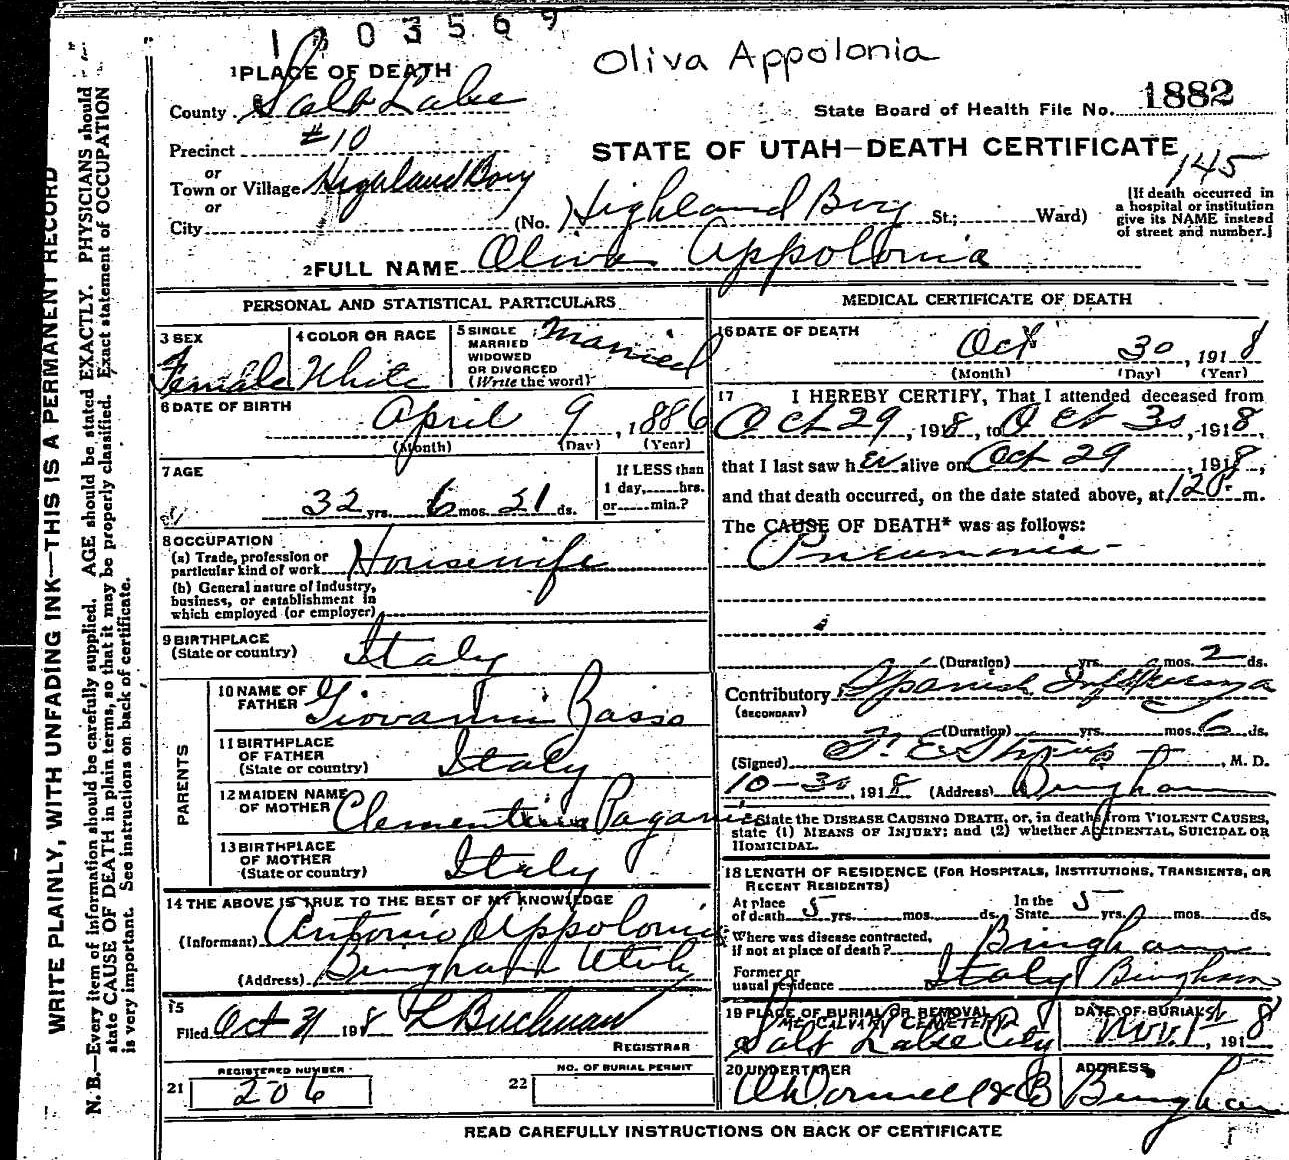 1803569
Oliva Appolonia
1 PLACE OF DEATH
County Salt Lake
State Board of Health File No. 1882
Precinct #10
STATE OF UTAH—DEATH CERTIFICATE
145
or
Town or Village Highland Boy
or
City
(No. Highland Boy St.; Ward)
[If death occurred in
a hospital or institution
give its NAME instead
of street and number.]
2 FULL NAME Oliva Appolonia
PERSONAL AND STATISTICAL PARTICULARS
3 SEX
Female
4 COLOR OR RACE
White
5 SINGLE
MARRIED
WIDOWED
OR DIVORCED
(Write the word)
Married
6 DATE OF BIRTH
April 9, 1886
(Month) (Day) (Year)
7 AGE
32 yrs. 6 mos. 21 ds.
If LESS than
1 day, hrs.
or min.?
8 OCCUPATION
(a) Trade, profession or
particular kind of work Housewife
(b) General nature of Industry,
business, or establishment in
which employed (or employer)
9 BIRTHPLACE
(State or country) Italy
PARENTS
10 NAME OF
FATHER Giovanni Basso
11 BIRTHPLACE
OF FATHER
(State or country) Italy
12 MAIDEN NAME
OF MOTHER Clementina Pagani
13 BIRTHPLACE
OF MOTHER
(State or country) Italy
14 THE ABOVE IS TRUE TO THE BEST OF MY KNOWLEDGE
(Informant) Antonio Appolonia
(Address) Bingham Utah
15
Filed Oct 31 1918 L Buchman
REGISTRAR
21
REGISTERED NUMBER
206
22
NO. OF BURIAL PERMIT
MEDICAL CERTIFICATE OF DEATH
16 DATE OF DEATH
Oct 30, 1918
(Month) (Day) (Year)
17 I HEREBY CERTIFY, That I attended deceased from
Oct 29, 1918, to Oct 30, 1918,
that I last saw her alive on Oct 29, 1918,
and that death occurred, on the date stated above, at 120 m.
The CAUSE OF DEATH* was as follows:
Pneumonia
(Duration) yrs. mos. 2 ds.
Contributory Spanish Influenza
(SECONDARY)
(Duration) yrs. mos. 6 ds.
(Signed) F. E. , M. D.
10-30, 1918 (Address) Bingham
*State the DISEASE CAUSING DEATH, or, in deaths from VIOLENT CAUSES,
state (1) MEANS OF INJURY; and (2) whether ACCIDENTAL, SUICIDAL OR
HOMICIDAL.
18 LENGTH OF RESIDENCE (FOR HOSPITALS, INSTITUTIONS, TRANSIENTS, OR
RECENT RESIDENTS)
At place
of death 5 yrs. mos. ds.
In the
State 5 yrs. mos. ds.
Where was disease contracted,
if not at place of death? Bingham
Former or
usual residence Italy Bingham
19 PLACE OF BURIAL OR REMOVAL
MT CALVARY CEMETERY
Salt Lake City
DATE OF BURIAL
Nov. 1st, 1918
20 UNDERTAKER
O'Donnell & Co
ADDRESS
Bingham
READ CAREFULLY INSTRUCTIONS ON BACK OF CERTIFICATE
WRITE PLAINLY, WITH UNFADING INK—THIS IS A PERMANENT RECORD
N. B.—Every item of information should be carefully supplied. AGE should be stated EXACTLY. PHYSICIANS should
state CAUSE OF DEATH in plain terms, so that it may be properly classified. Exact statement of OCCUPATION
is very important. See instructions on back of certificate.